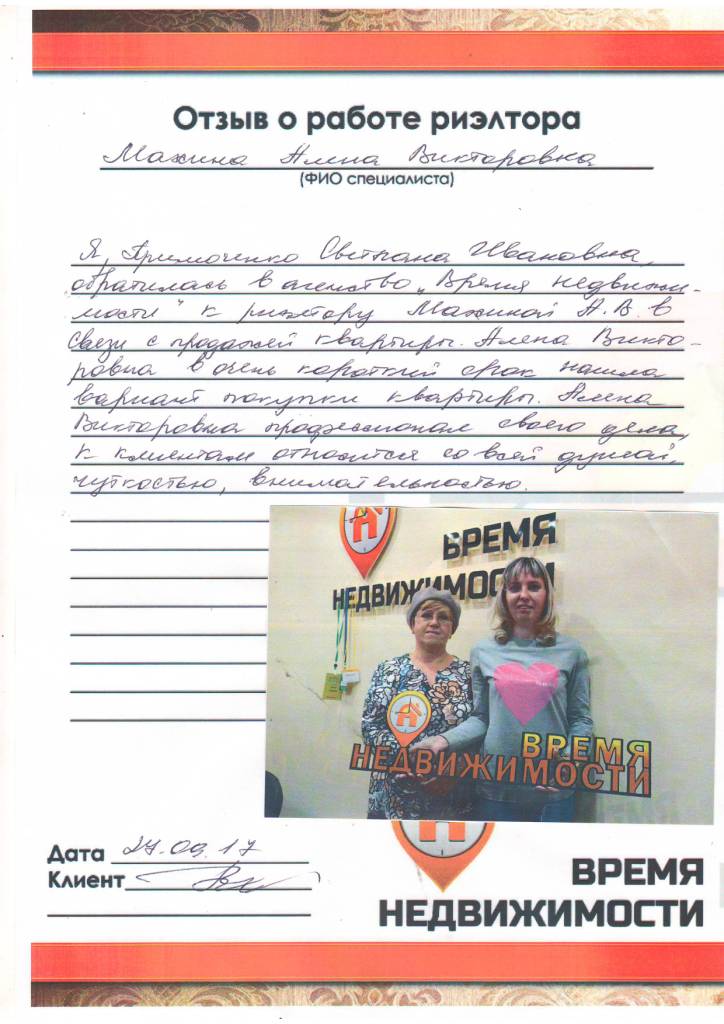 Отзыв о работе риэлтора
Махина Алена Викторовна
(ФИО специалиста)
Я, Примоченко Светлана Ивановна,
обратилась в агенство „Время недвижи-
мости" к риэлтору Махиной А.В. в
связи с продажей квартиры. Алена Викто-
ровна в очень короткий срок нашла
вариант покупки квартиры. Алена
Викторовна профессионал своего дела,
к клиентам относится со всей душой,
чуткостью, внимательностью.
ВРЕМЯ
НЕДВИЖИМОСТИ
ВРЕМЯ
НЕДВИЖИМОСТИ
Дата 27.09.17
Клиент
ВРЕМЯ
НЕДВИЖИМОСТИ